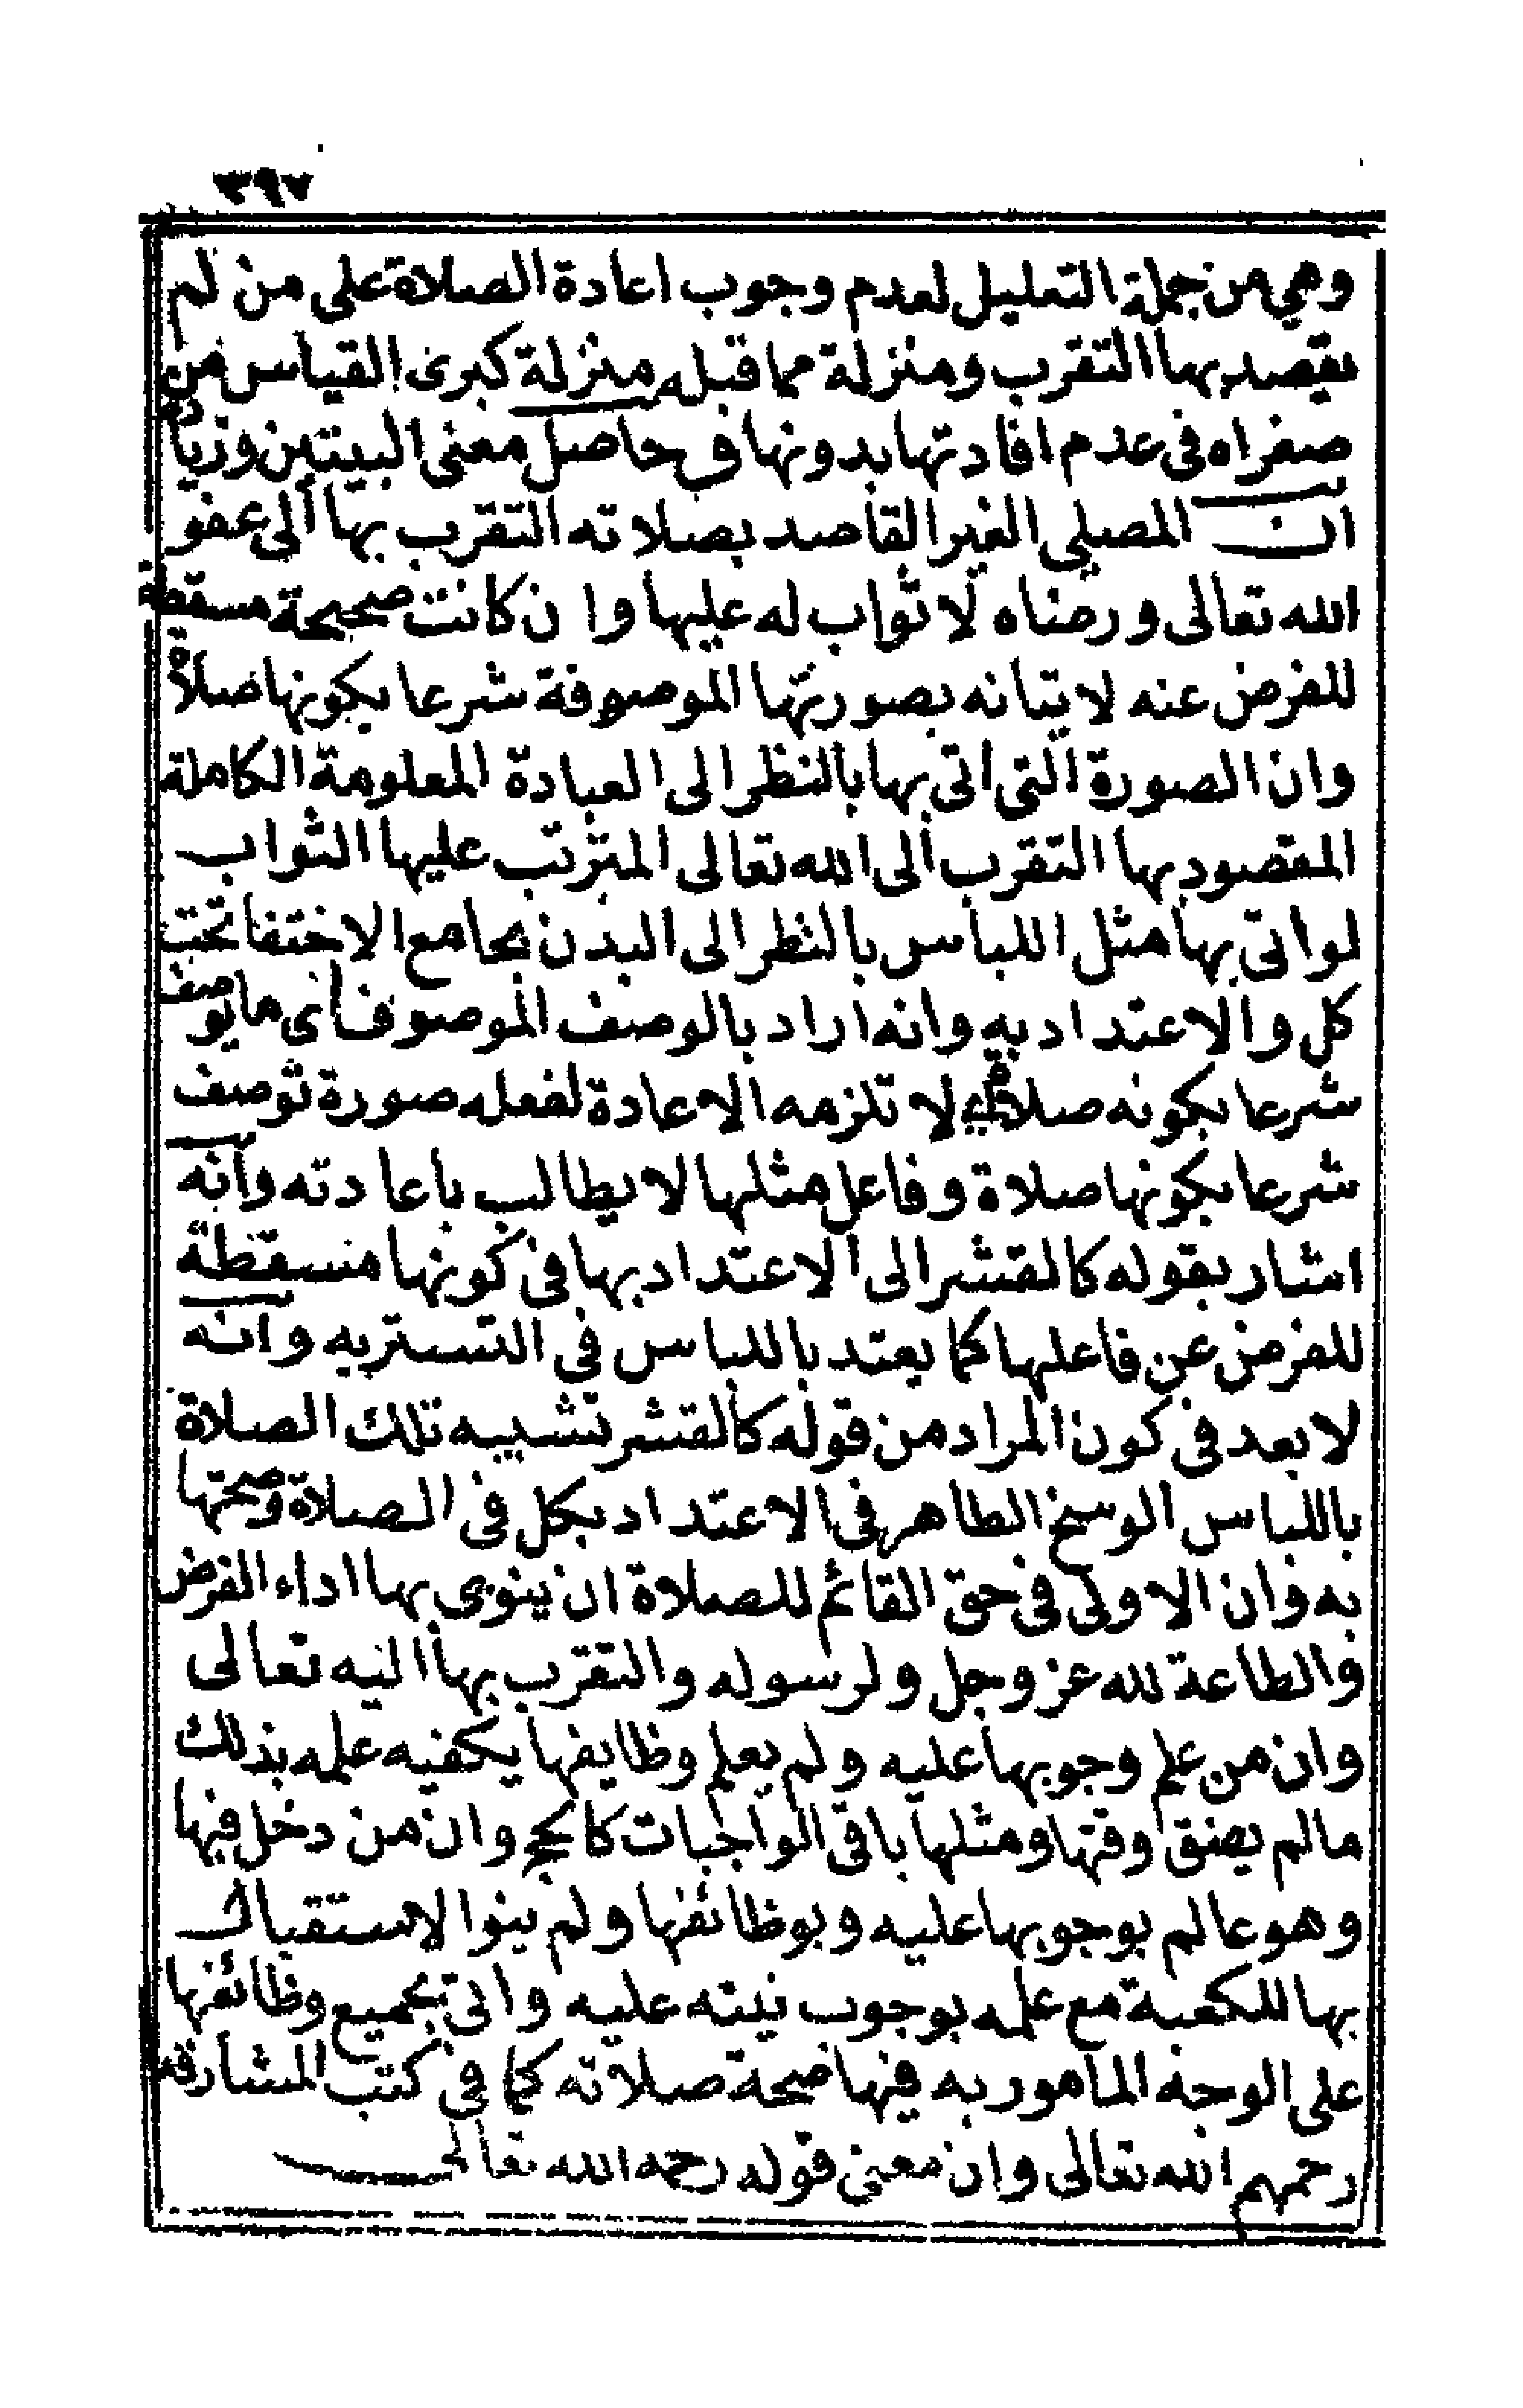 ٣٩٧
وهي من جملة التعليل لعدم وجوب اعادة الصلاة على من لم
يقصد بها التقرب ومنزلة مما قبله منزلة كبرى القياس من
صغراه في عدم افادتها بدونها وحاصل معنى البيتين وزيادة
ان المصلي الغير القاصد بصلاته التقرب بها الى عفو
الله تعالى ورضاه لا ثواب له عليها وان كانت صحيحة مسقطة
للفرض عنه لاتيانه بصورتها الموصوفة شرعا بكونها صلاة
وان الصورة التي اتى بها بالنظر الى العبادة المعلومة الكاملة
المقصود بها التقرب الى الله تعالى المترتب عليها الثواب
لو اتى بها مثل اللباس بالنظر الى البدن بجامع الاختفا تحت
كل والاعتداد به وانه اراد بالوصف الموصوف اى ما يوصف
شرعا بكونه صلاة لا تلزمه الاعادة لفعله صورة توصف
شرعا بكونها صلاة وفاعل مثلها لا يطالب باعادته وانه
اشار بقوله كالقشر الى الاعتداد بها في كونها مسقطة
للفرض عن فاعلها كما يعتد باللباس في التستر به وانه
لا بعد في كون المراد من قوله كالقشر تشبيه تلك الصلاة
باللباس الوسخ الطاهر في الاعتداد بكل في الصلاة وصحتها
به وان الاولى في حق القائم للصلاة ان ينوى بها اداء الفرض
والطاعة لله عز وجل ولرسوله والتقرب بها اليه تعالى
وان من علم وجوبها عليه ولم يعلم وظايفها يكفيه علمه بذلك
ما لم يضق وقتها ومثلها باقي الواجبات كالحج وان من دخل فيها
وهو عالم بوجوبها عليه وبوظائفها ولم ينوا لاستقبال
بها للكعبة مع علمه بوجوب نيته عليه واتى بجميع وظائفها
على الوجه المامور به فيها صحة صلاته كما في كتب المشارقه
رحمهم الله تعالى وان معنى قوله رحمه الله تعالى